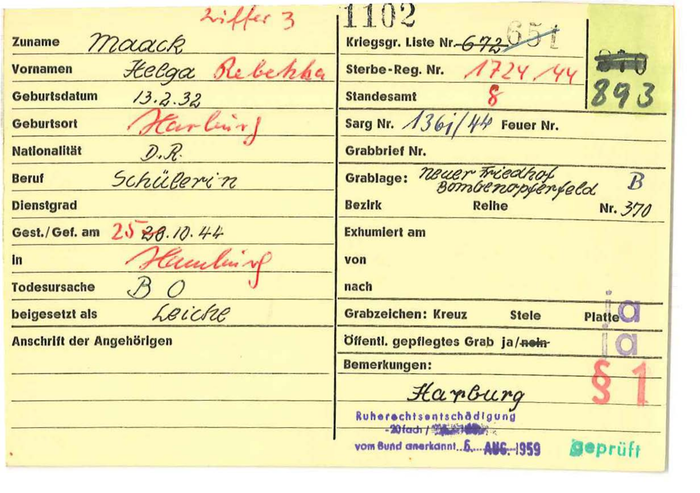 Ziffer 3
1102
Zuname Maack
Vornamen Helga Rebekka
Geburtsdatum 13.2.32
Geburtsort Harburg
Nationalität D.R.
Beruf Schülerin
Dienstgrad
Gest./Gef. am 25 28.10.44
in Hamburg
Todesursache B O
beigesetzt als Leiche
Anschrift der Angehörigen
Kriegsgr. Liste Nr. 672 651
Sterbe-Reg. Nr. 1724/44
Standesamt 8
893
Sarg Nr. 136i/44 Feuer Nr.
Grabbrief Nr.
Grablage: neuer Friedhof
Bombenopferfeld B
Bezirk Reihe Nr. 370
Exhumiert am
von
nach
Grabzeichen: Kreuz Stele Platte ja
Öffentl. gepflegtes Grab ja/nein ja
Bemerkungen: § 1
Harburg
Ruherechtsentschädigung
-20fach /
vom Bund anerkannt 6. AUG. 1959
geprüft